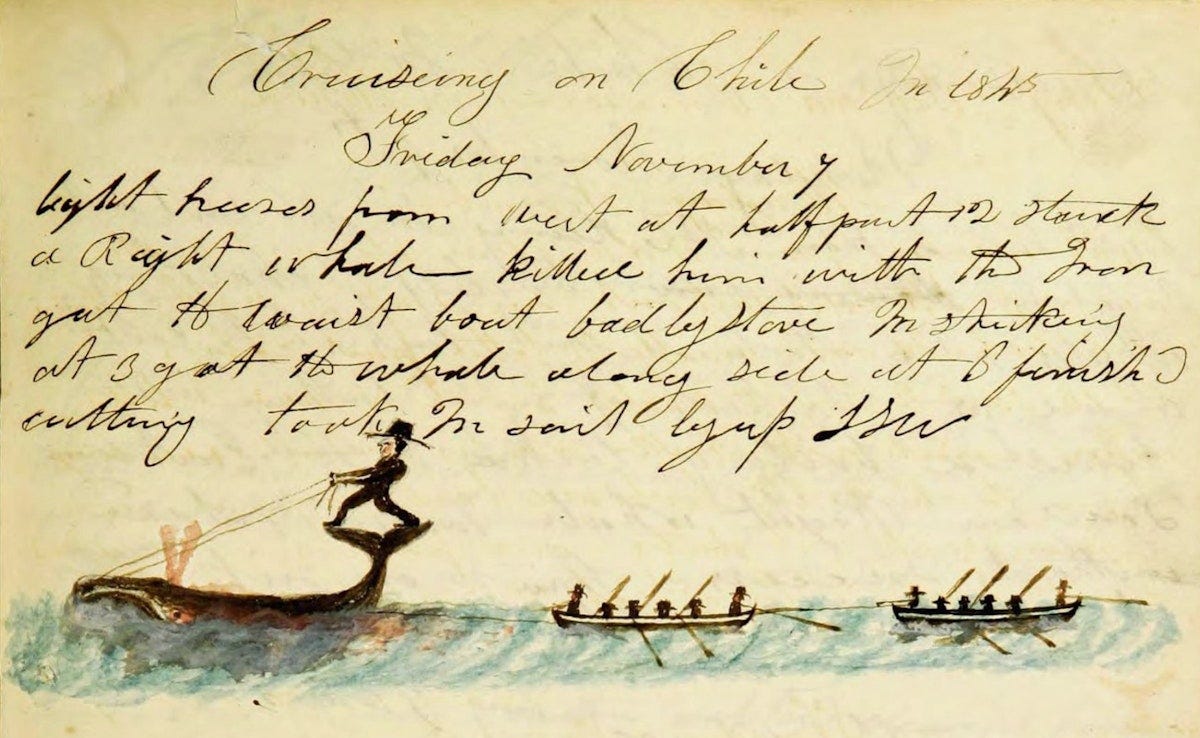 Cruiseing on Chile In 1845
Friday November 7
light breeses from west at half past 12 struck
a Right whale killed him with the Iron
got the waist boat badly stove In striking
at 3 got the whale along side at 6 finish
cutting took In sail